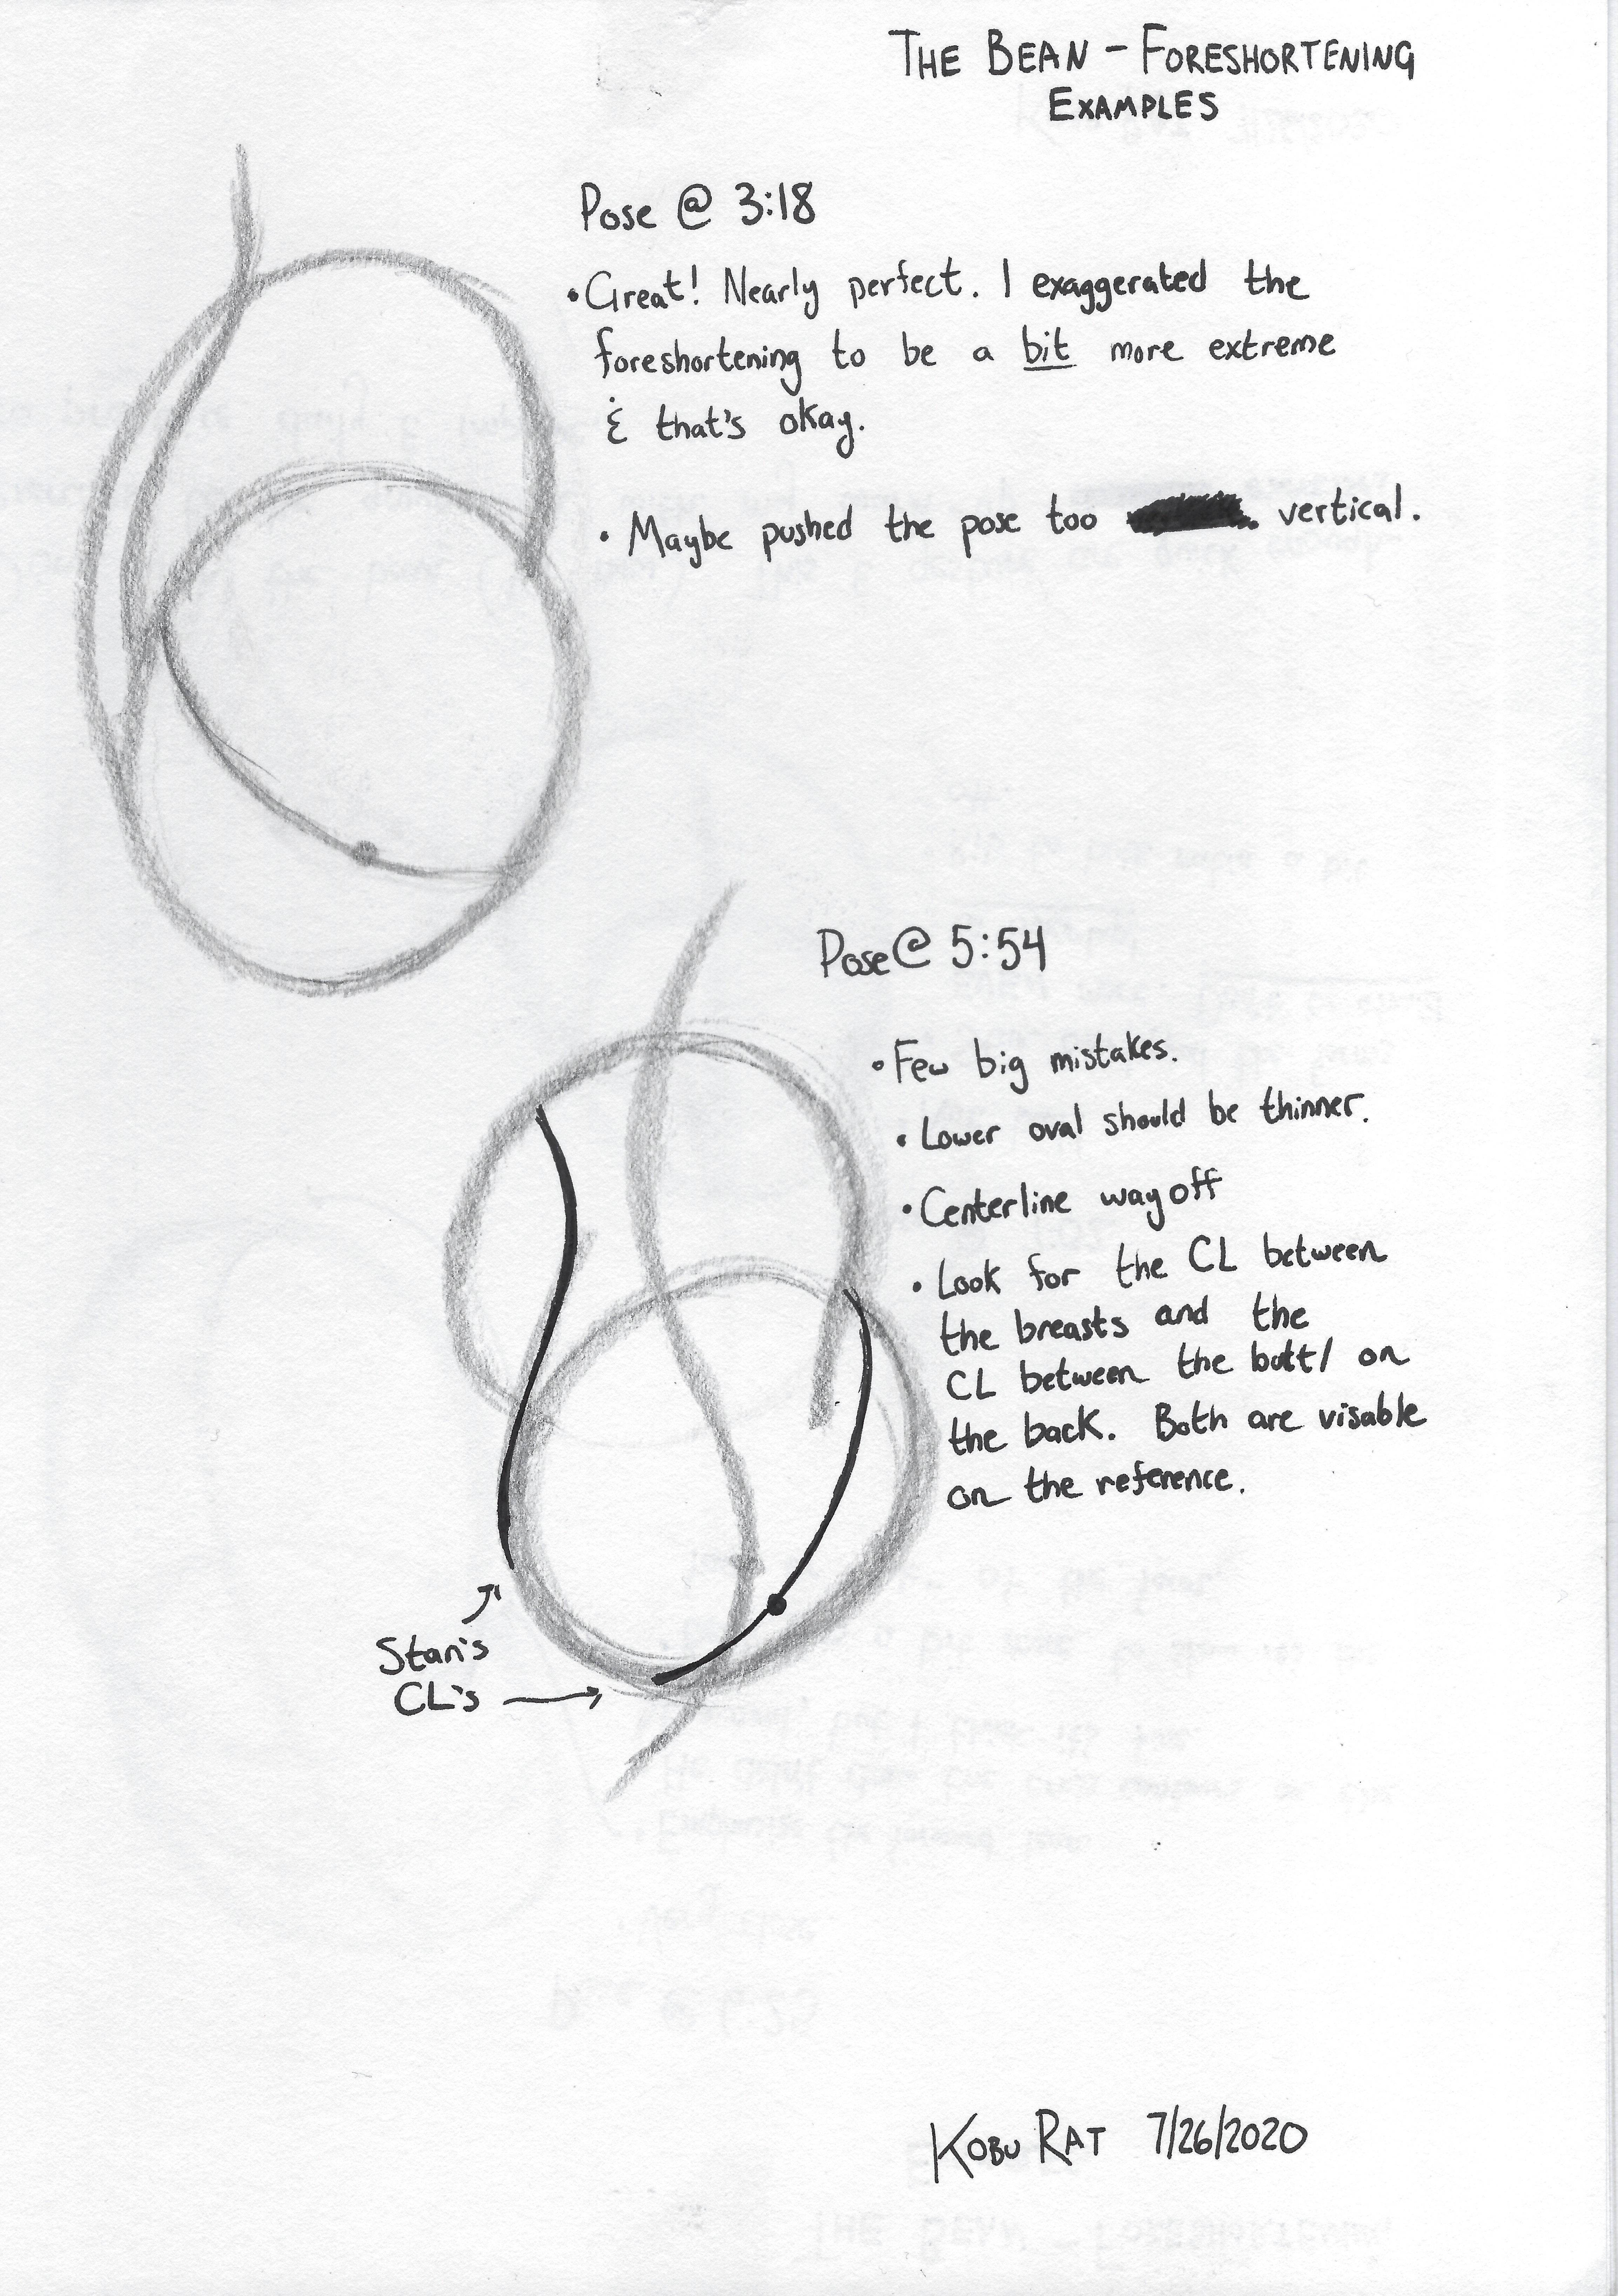 THE BEAN - FORESHORTENING
EXAMPLES
Pose @ 3:18
• Great! Nearly perfect. I exaggerated the
foreshortening to be a bit more extreme
& that's okay.
• Maybe pushed the pose too vertical.
Pose @ 5:54
• Few big mistakes.
• Lower oval should be thinner.
• Centerline way off
• Look for the CL between
the breasts and the
CL between the butt/ on
the back. Both are visable
on the reference.
Stan's
CL's
KOBU RAT 7/26/2020